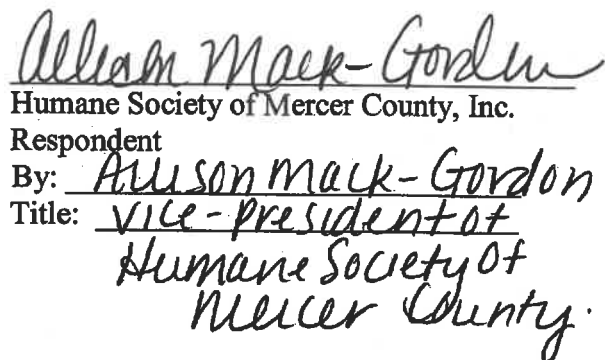 Allison Mack-Gordon
Humane Society of Mercer County, Inc.
Respondent
By: Allison Mack-Gordon
Title: Vice-President of
Humane Society Of
Mercer County.